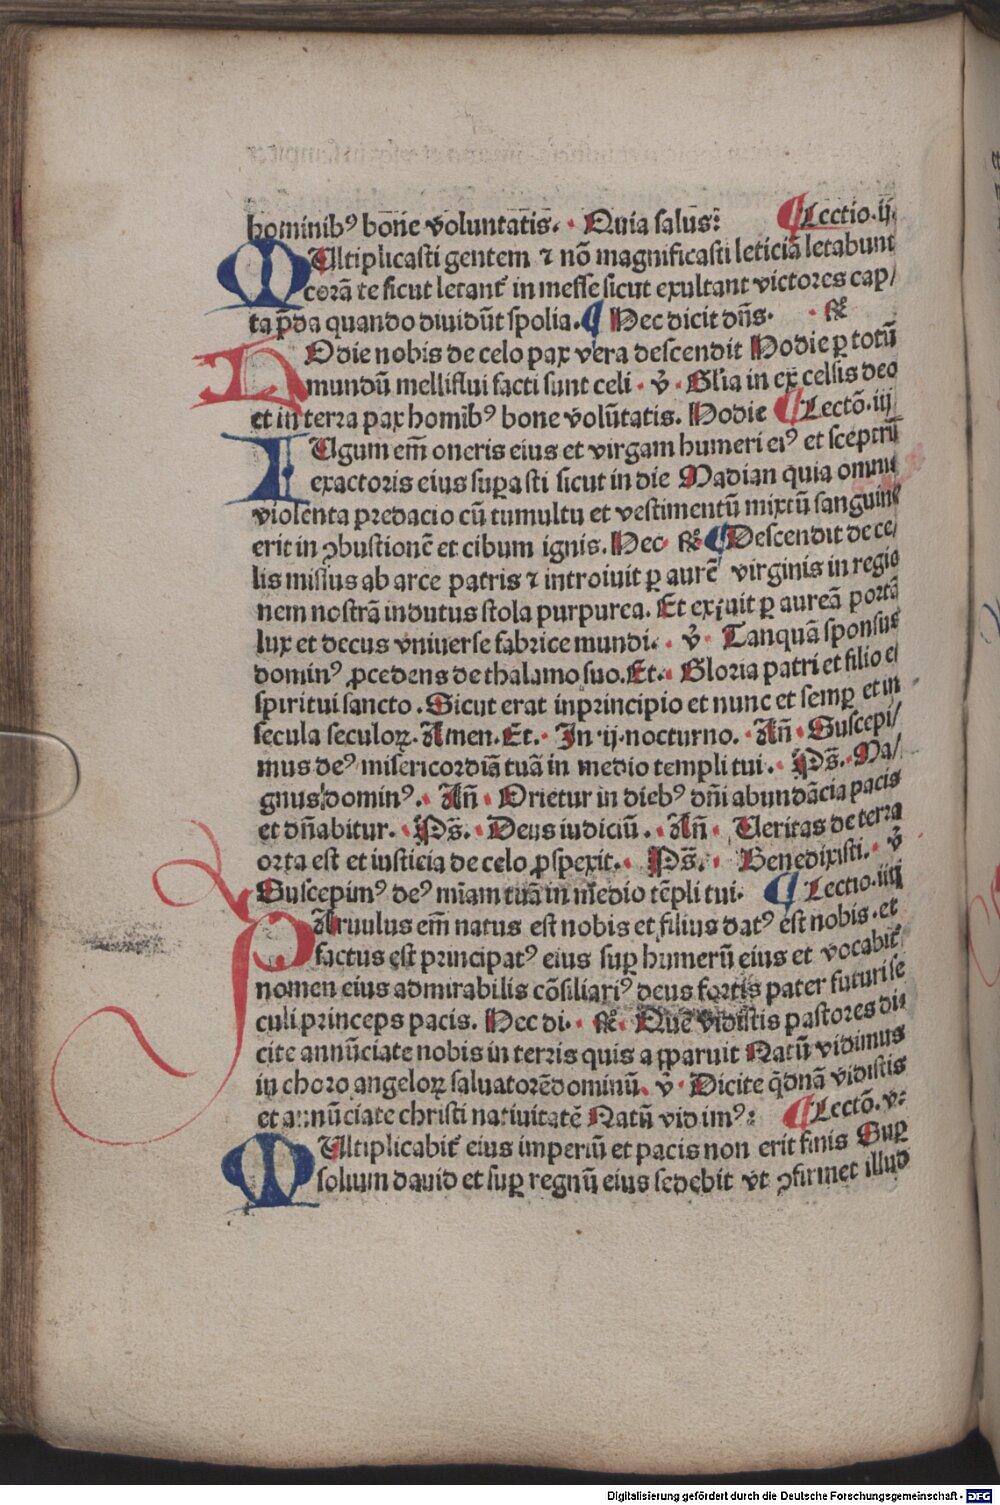 hominibꝰ bone voluntatis. Quia salus: ¶ Lectio.ij.
MUltiplicasti gentem ⁊ nō magnificasti leticiā letabunt̄
corā te sicut letant̄ in messe sicut exultant victores cap/
ta p̄da quando diuidūt spolia. ¶ Hec dicit dn̄s. ℟
HOdie nobis de celo pax vera descendit Hodie ꝑ totū
mundū melliflui facti sunt celi. ℣. Gl̄ia in excelsis deo
et in terra pax homībꝰ bone volūtatis. Hodie ¶ Lectō.iij
IUgum em̄ oneris eius et virgam humeri eiꝰ et sceptrū
exactoris eius suꝑasti sicut in die Madian quia omnis
violenta predacio cū tumultu et vestimentū mixtū sanguine
erit in ꝯbustionē et cibum ignis. Hec ℟ ¶ Descendit de ce/
lis missus ab arce patris ⁊ introiuit ꝑ aurē virginis in regio
nem nostrā indutus stola purpurea. Et exiuit ꝑ aureā portā
lux et decus vniuerse fabrice mundi. ℣. Tanquā sponsus
dominꝰ ꝓcedens de thalamo suo. Et. Gloria patri et filio et
spiritui sancto. Sicut erat in principio et nunc et semꝑ et in
secula seculoꝝ. Amen. Et. In.ij.nocturno. An̄ Suscepi/
mus deꝰ misericordiā tuā in medio templi tui. Ps̄. Ma/
gnus dominꝰ. An̄ Orietur in diebꝰ dn̄i abundācia pacis
et dn̄abitur. Ps̄. Deus iudiciū. An̄ Ueritas de terra
orta est et iusticia de celo ꝓspexit. Ps̄. Benedixisti. ℣
Suscepimꝰ deꝰ mi̅am tuā in medio tēpli tui. ¶ Lectio.iiij
PAruulus em̄ natus est nobis et filius datꝰ est nobis. et
factus est principatꝰ eius suꝑ humerū eius et vocabit̄
nomen eius admirabilis cōsiliariꝰ deus fortis pater futuri se
culi princeps pacis. Hec di. ℟. Quē vidistis pastores di/
cite annūciate nobis in terris quis apparuit Natū vidimus
in choro angeloꝝ saluatorē dominū. ℣. Dicite q̄dnā vidistis
et annūciate christi natiuitatē Natū vidimꝰ: ¶ Lectō.v:
MUltiplicabit̄ eius imperiū et pacis non erit finis Suꝑ
solium dauid et suꝑ regnū eius sedebit vt ꝯfirmet illud
Digitalisierung gefördert durch die Deutsche Forschungsgemeinschaft - DFG